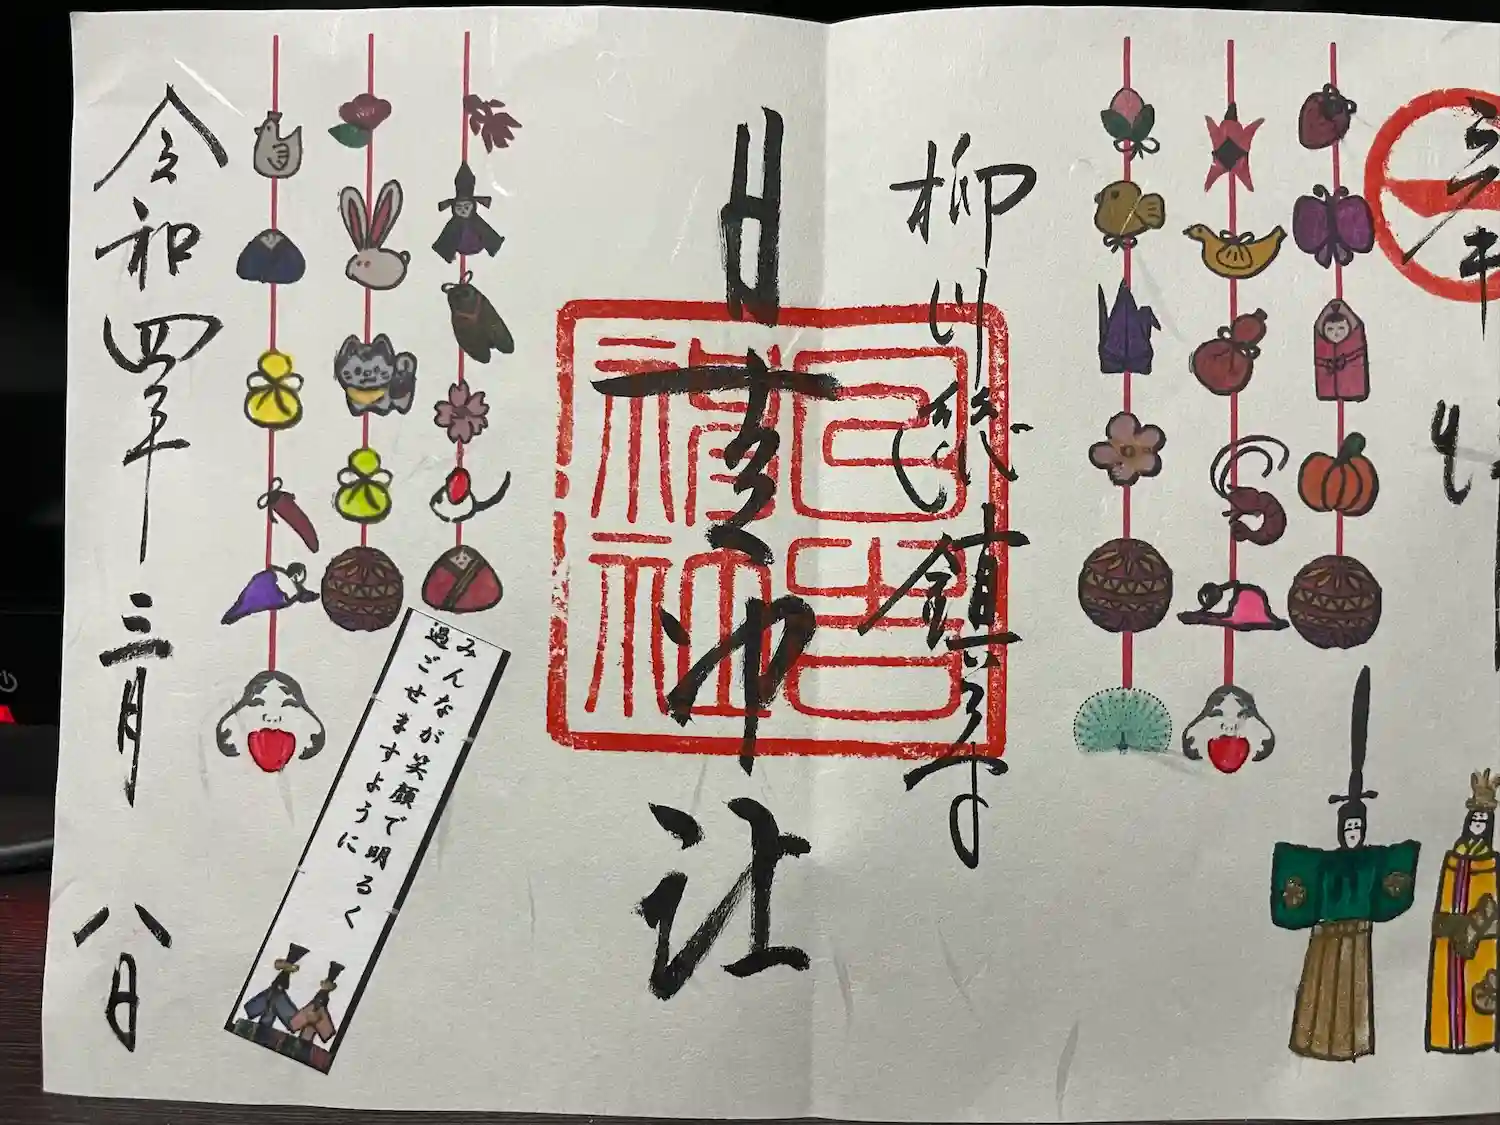 柳川総鎮守
日吉神社
日吉神社
令和四年三月八日
みんなが笑顔で明るく
過ごせますように